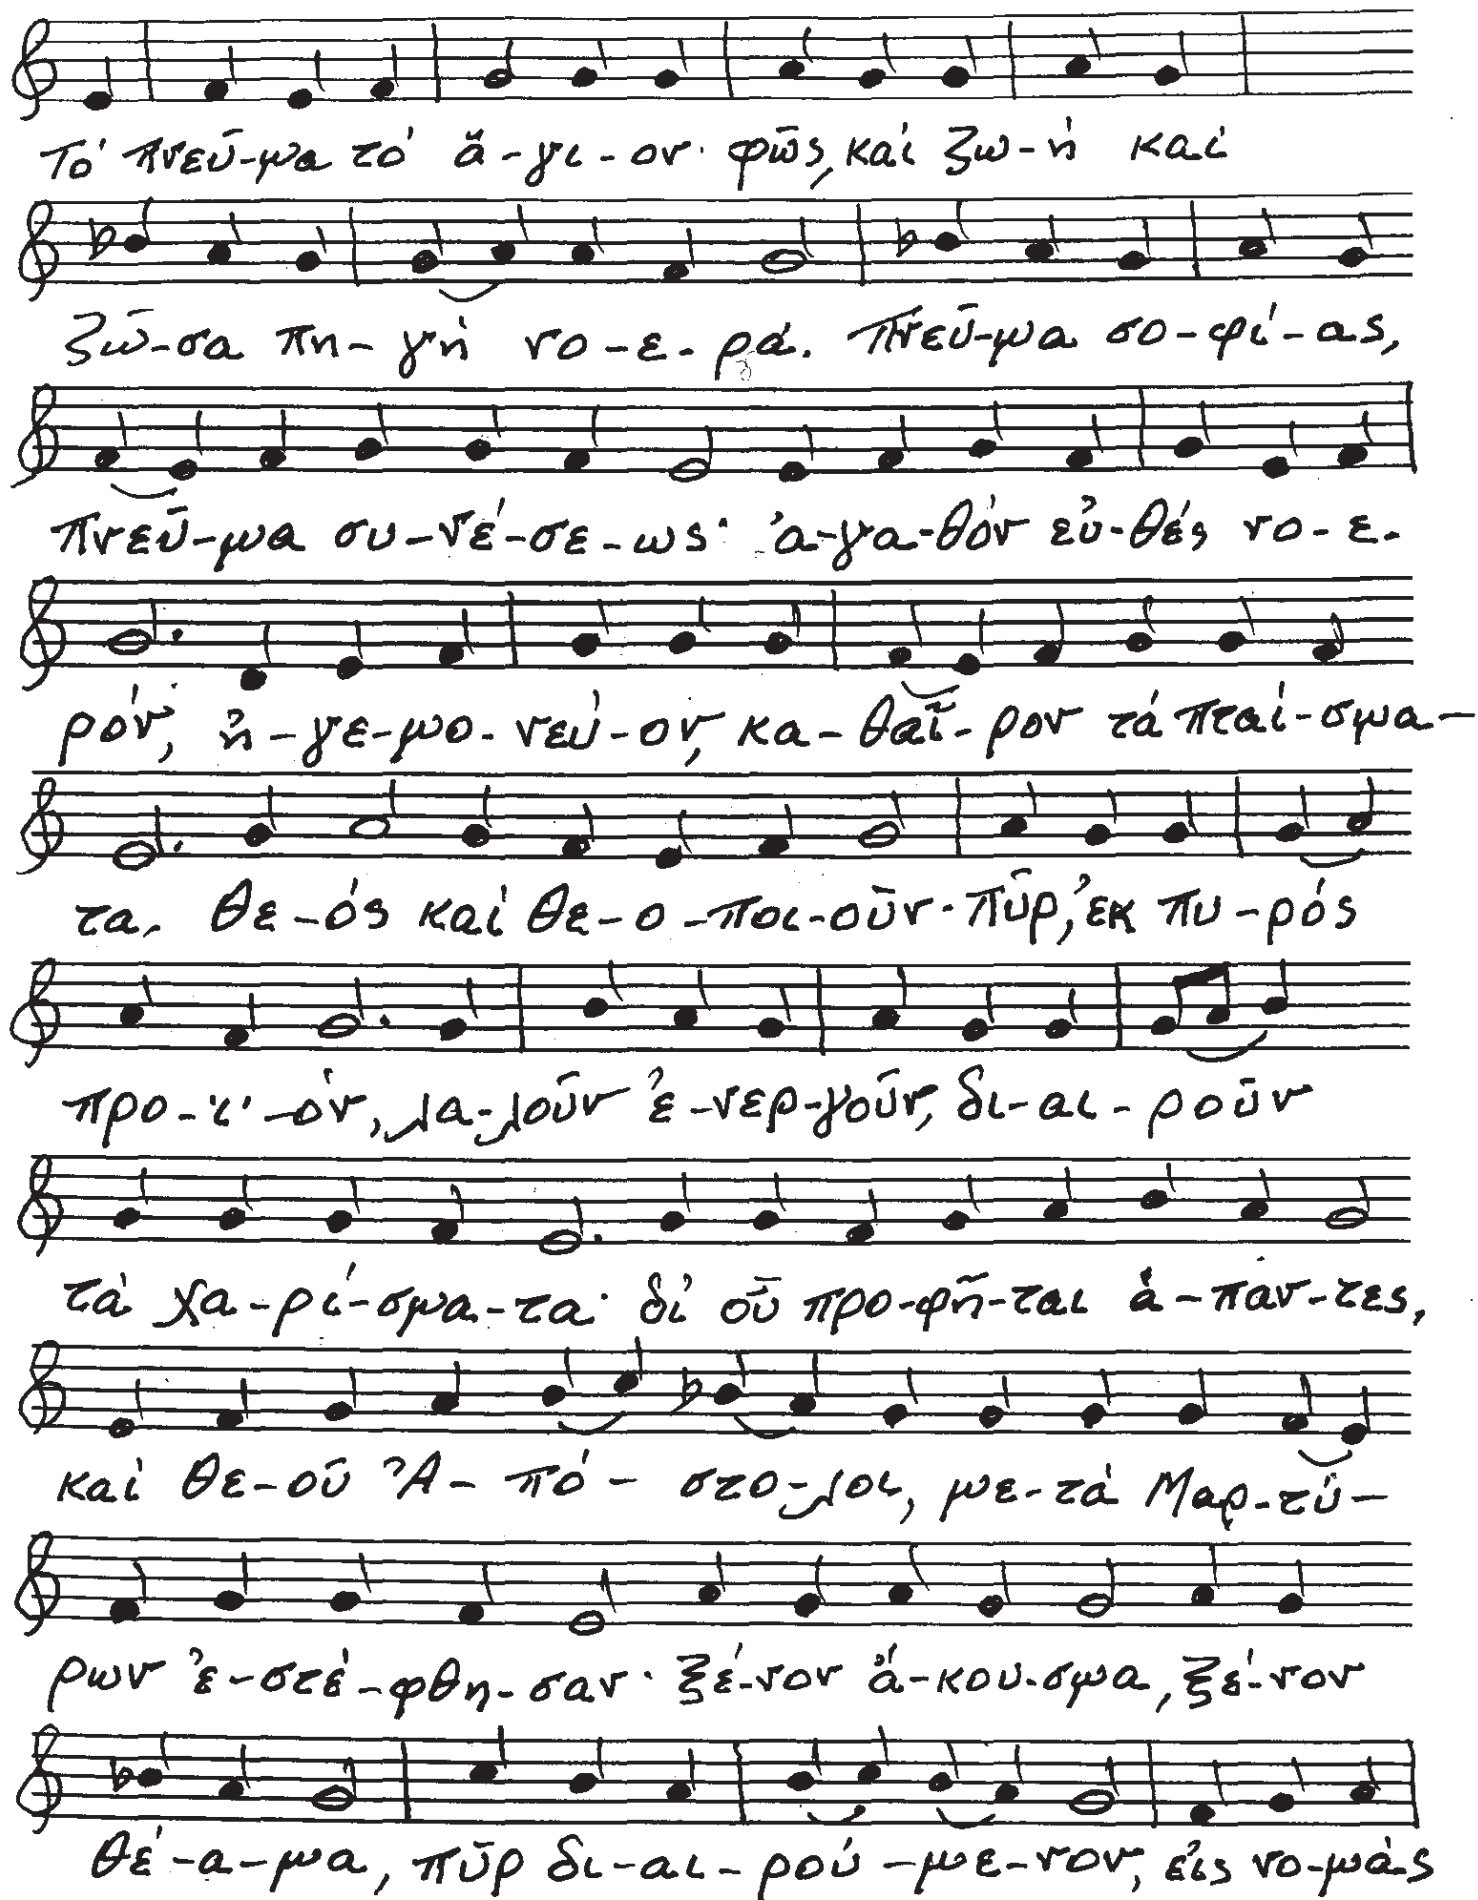 Τό πνεῦ-μα τό ἅ-γι-ον· φῶς, καί ζω-ή καί
ζῶ-σα πη-γή νο-ε-ρά. Πνεῦ-μα σο-φί-ας,
πνεῦ-μα συ-νέ-σε-ως· ἀ-γα-θόν εὐ-θές νο-ε-
ρόν, ἡ-γε-μο-νεύ-ον, κα-θαῖ-ρον τά πταί-σμα-
τα. Θε-ός καί θε-ο-ποι-οῦν· Πῦρ, ἐκ πυ-ρός
προ-ϊ-όν, λα-λοῦν ἐ-νερ-γοῦν, δι-αι-ροῦν
τά χα-ρί-σμα-τα· δι' οὗ προ-φῆ-ται ἅ-παν-τες,
καί Θε-οῦ Ἀ-πό-στο-λοι, με-τά Μαρ-τύ-
ρων ἐ-στέ-φθη-σαν· ξέ-νον ἄ-κου-σμα, ξέ-νον
θέ-α-μα, πῦρ δι-αι-ρού-με-νον, εἰς νο-μά-ς